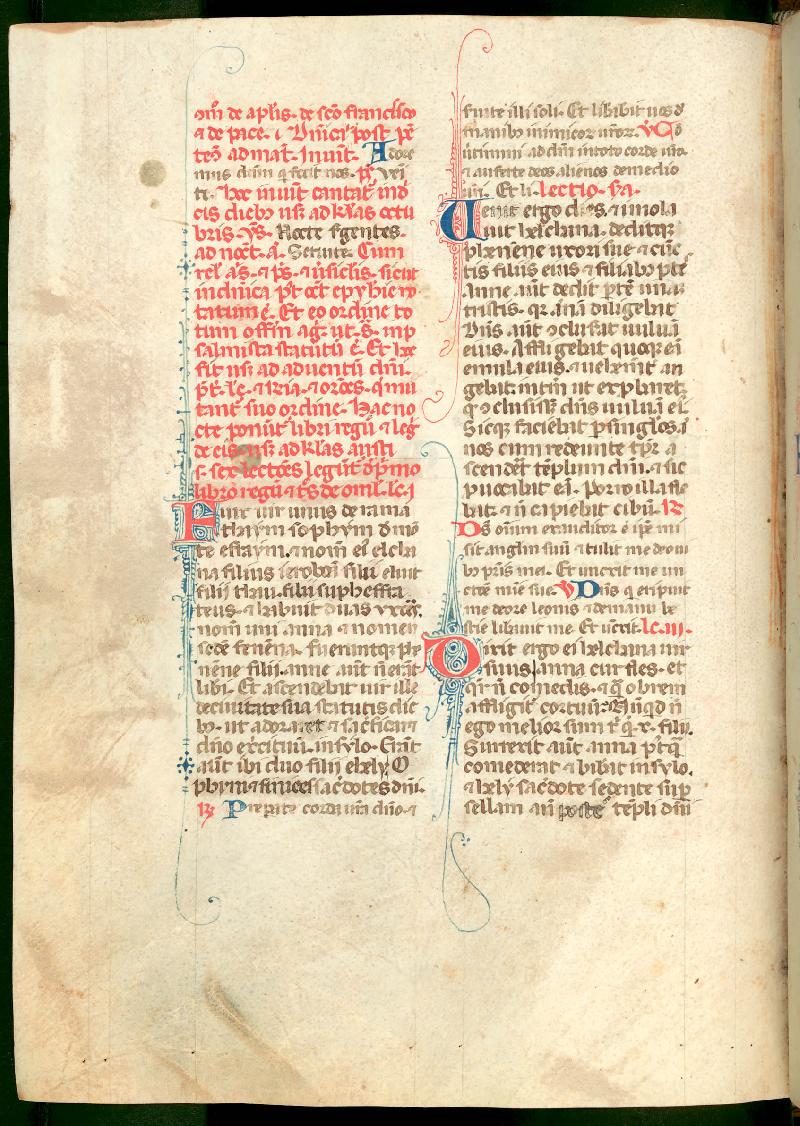 om̄ de aplis. de sc̄o francisco
⁊ de pace. ⁊ Dn̄ica post pē
teō. ad mat̄. Inuit. Adore
mus dn̄m q̄ fecit nos. p̄s. veī
te. hoc inuit cantat̄ in o
cis diebꝫ usꝫ ad kłas octu
bris. ẏs. Nocte s̄gentes.
ad noct̄. a. Seruite. Cum
rel̄ as. ⁊ p̄s. ⁊ ūsiclis. sicut
in dn̄ica p̄t oct̄ epyhie no
tatum ē. Et eo ordine to
tum offm̄ agr̄ ut. s̄. in p
salmista statutū ē. Et hoc
fit usꝫ ad aduentū dn̄i.
⁊ oro̅es. q̄ mu
tant suo ordine. Hac no
cte ponūt̄ libri regū ⁊ leḡ
de eis usꝫ ad kłas augsti
s. sex lectōes legūt̄ d̄ pͥmo
libro regū ⁊ t̄s de omł. lc̄. i
Fuit uir unus de rama
thaym sophym d̄ mō
te effraym. ⁊ nom̄ ei elcha
na filius ieroboā filii eliut
filii thau. filii suph effra
teus. ⁊ habuit duas uxor̄.
nom̄ uni anna ⁊ nomen
scd̄e fenēna. fuerunt̄qꝫ phe
nēne filii. anne aūt n̄ erāt
libi. Et ascendebat uir ille
de ciuitate sua statutis die
bꝫ. ut adoraret ⁊ sac̄ficar̄
dn̄o exc̄ituū. in sylo. Erāt
aūt ibi duo filii ehely. O
phym ⁊ finees sac̄dotes dn̄i.
℟. Preparate corda ur̄a dn̄o. ⁊
suite illi soli. Et libabit uos d̄
manibꝫ inimicoꝝ ur̄oꝝ. ℣. Cō
ūtimini ad dn̄i in toto corde ur̄o.
⁊ auferte deos alienos de medio
ur̄i. Et li. lectio. s̄a.
Uenit ergo dies. ⁊ imola
uit helchana. deditqꝫ
phenēne uxori sue ⁊ cūc
tis filiis eius ⁊ filiabꝫ p̄tē
Anne aūt dedit p̄tē unā
tristis. qr̄ anā diligebat
Dn̄s aūt ꝯcluserat uuluā
eius. Affligebat quoqꝫ eā
emula eius. ⁊ uehemēt an
gebat. intm̄ ut expbaret.
q̄ ꝯclusisꝫ dn̄s uuluā ei.
Sicqꝫ faciebat p singlos a
nos cum redeunte tpr̄ a
scendēt tēplum dn̄i. ⁊ sic
puocabat eā. Porro illa fle
bat. ⁊ n̄ capiebat cibū. ℟.
Ds̄ oīum exauditor ē ip̄e mi
sit anglm̄ suū ⁊ tulit me de oui
bꝫ p̄ris mei. Et unxit me un
ctōe mīe sue. ℣. Dn̄s q̄ eripuit
me de ore leonis ⁊ de manu be
stie liberauit me. Et unxit. lc̄. iii.
Dixit ergo ei helchana uir
suus. anna cur fles. ⁊
qr̄ n̄ comedis. ⁊ q̄ obrem
affligit̄ cor tuū. Nūqd n̄
ego melior sum t̄ q̄. x. filii.
Surrexit aūt anna p̄t q̄
comederat ⁊ bibat in sylo.
⁊ hely sac̄dote sedente sup
sellam an̄ postē tēpli dn̄i